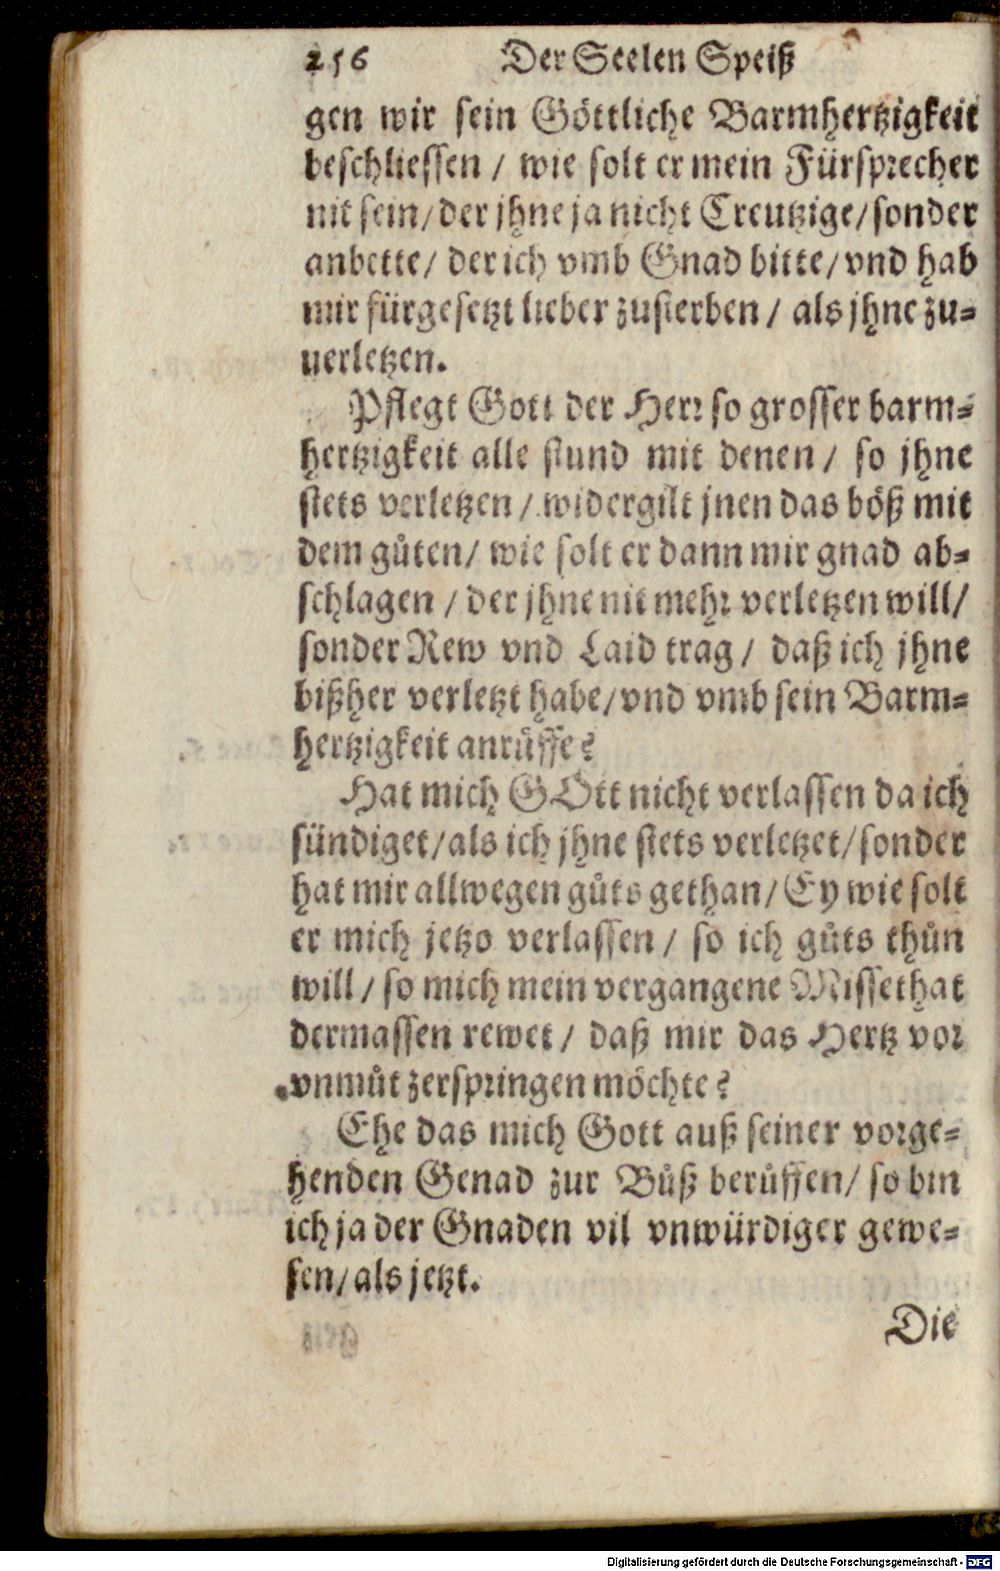 256 Der Seelen Speiß
gen wir sein Göttliche Barmhertzigkeit
beschliessen / wie solt er mein Fürsprecher
nit sein / der jhne ja nicht Creutzige / sonder
anbette / der ich vmb Gnad bitte / vnd hab
mir fürgesetzt lieber zusterben / als jhne zu-
uerletzen.
Pflegt Gott der Herr so grosser barm-
hertzigkeit alle stund mit denen / so jhne
stets verletzen / widergilt jnen das böß mit
dem gůten / wie solt er dann mir gnad ab-
schlagen / der jhne nit mehr verletzen will /
sonder Rew vnd Laid trag / daß ich jhne
bißher verletzt habe / vnd vmb sein Barm-
hertzigkeit anrůffe?
Hat mich GOtt nicht verlassen da ich
sündiget / als ich jhne stets verletzet / sonder
hat mir allwegen gůts gethan / Ey wie solt
er mich jetzo verlassen / so ich gůts thůn
will / so mich mein vergangene Missethat
dermassen rewet / daß mir das Hertz vor
vnmůt zerspringen möchte?
Ehe das mich Gott auß seiner vorge-
henden Genad zur Bůß berůffen / so bin
ich ja der Gnaden vil vnwürdiger gewe-
sen / als jetzt.
Die
Digitalisierung gefördert durch die Deutsche Forschungsgemeinschaft - DFG